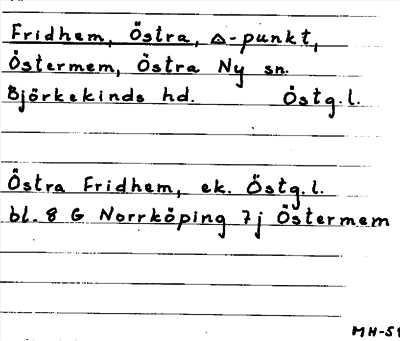 Fridhem, Östra, △-punkt,
Östermem, Östra Ny sn.
Björkekinds hd. Östg.l.
Östra Fridhem, ek. Östg.l.
bl. 8 G Norrköping 7j Östermem
MH-59